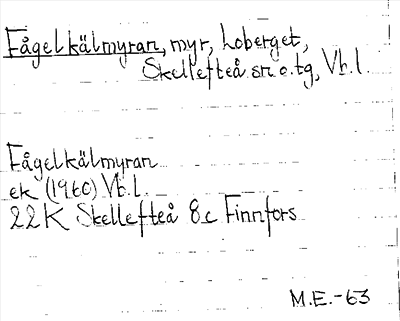 Fågelkälmyran, myr, Loberget,
Skellefteå sn o. tg, Vb. l.
Fågelkälmyran
ek (1960) Vb. l.
22K Skellefteå 8c Finnfors
M.E.-63